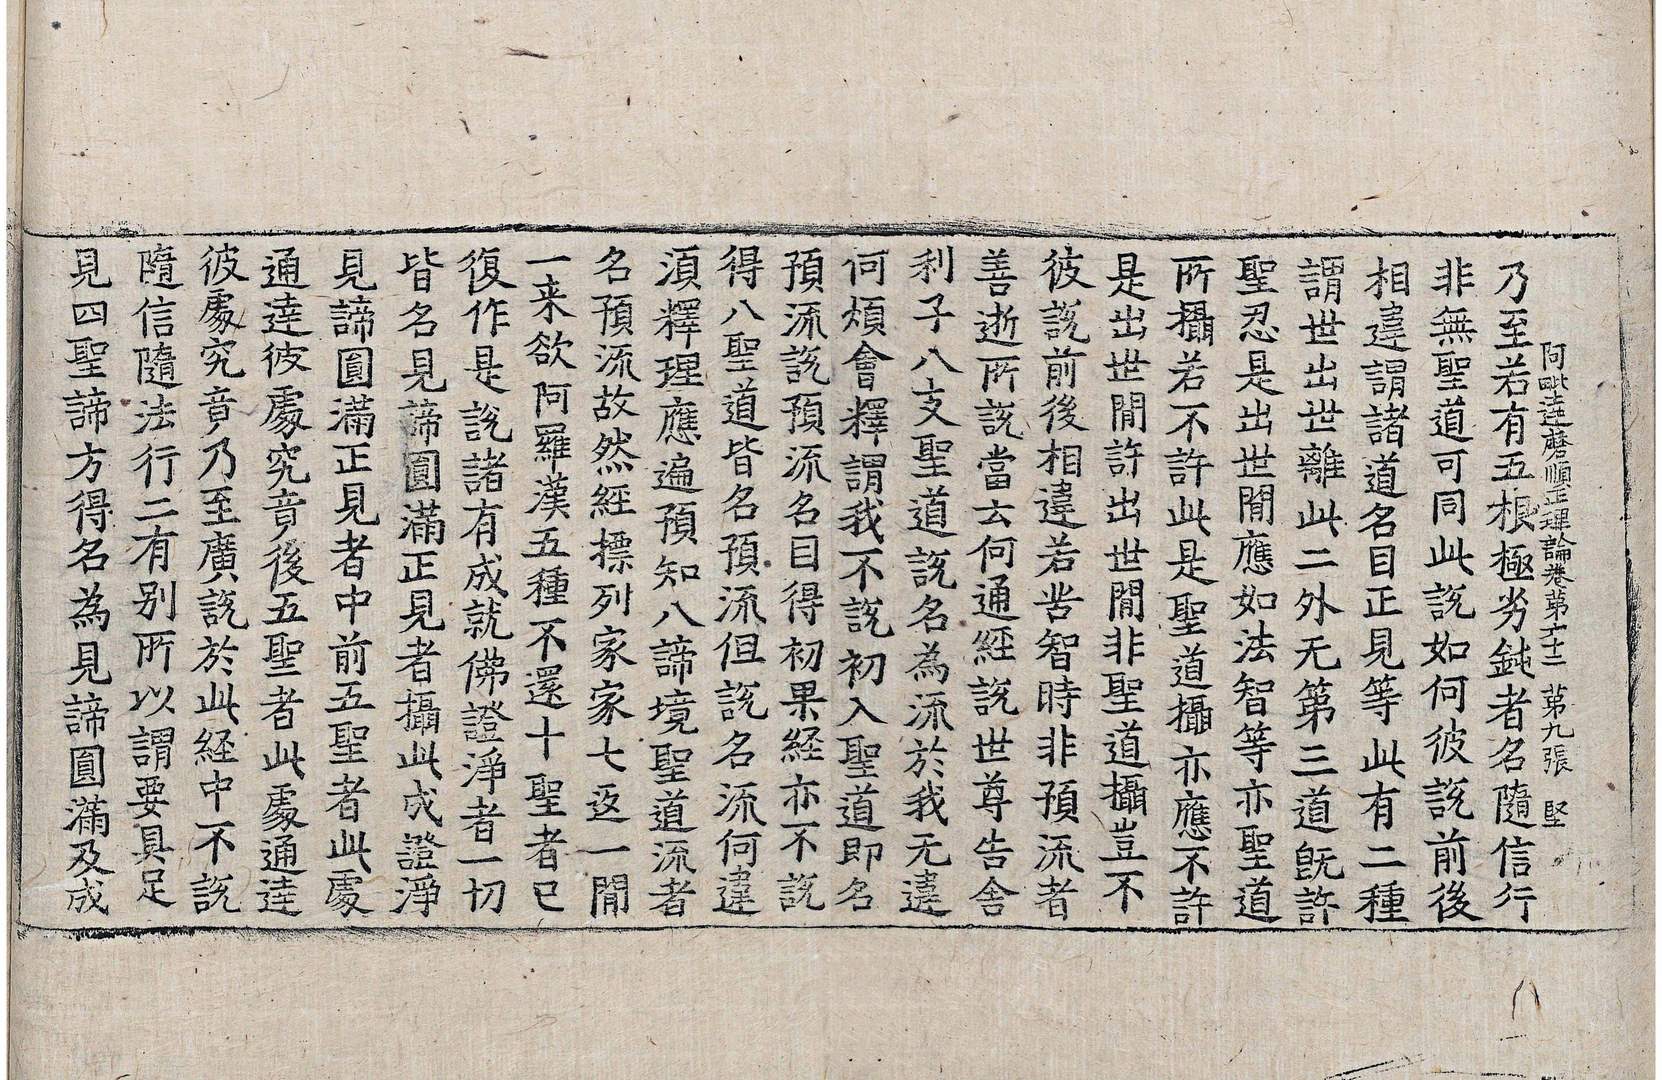 阿毗達磨順正理論卷第六十二 第九張 堅
乃至若有五根極劣鈍者名隨信行
非無聖道可同此說如何彼說前後
相違謂諸道名目正見等此有二種
謂世出世離此二外无第三道旣許
聖忍是出世間應如法智等亦聖道
所攝若不許此是聖道攝亦應不許
是出世間許出世間非聖道攝豈不
彼說前後相違若苦智時非預流者
善逝所說當云何通經說世尊告舍
利子八支聖道說名為流於我无違
何煩會釋謂我不說初入聖道即名
預流說預流名目得初果經亦不說
得八聖道皆名預流但說名流何違
須釋理應遍預知八諦境聖道流者
名預流故然經摽列家家七返一間
一来欲阿羅漢五種不還十聖者已
復作是說諸有成就佛證淨者一切
皆名見諦圓滿正見者攝此成證淨
見諦圓滿正見者中前五聖者此處
通達彼處究竟後五聖者此處通達
彼處究竟乃至廣說於此経中不說
隨信隨法行二有別所以謂要具足
見四聖諦方得名為見諦圓滿及成